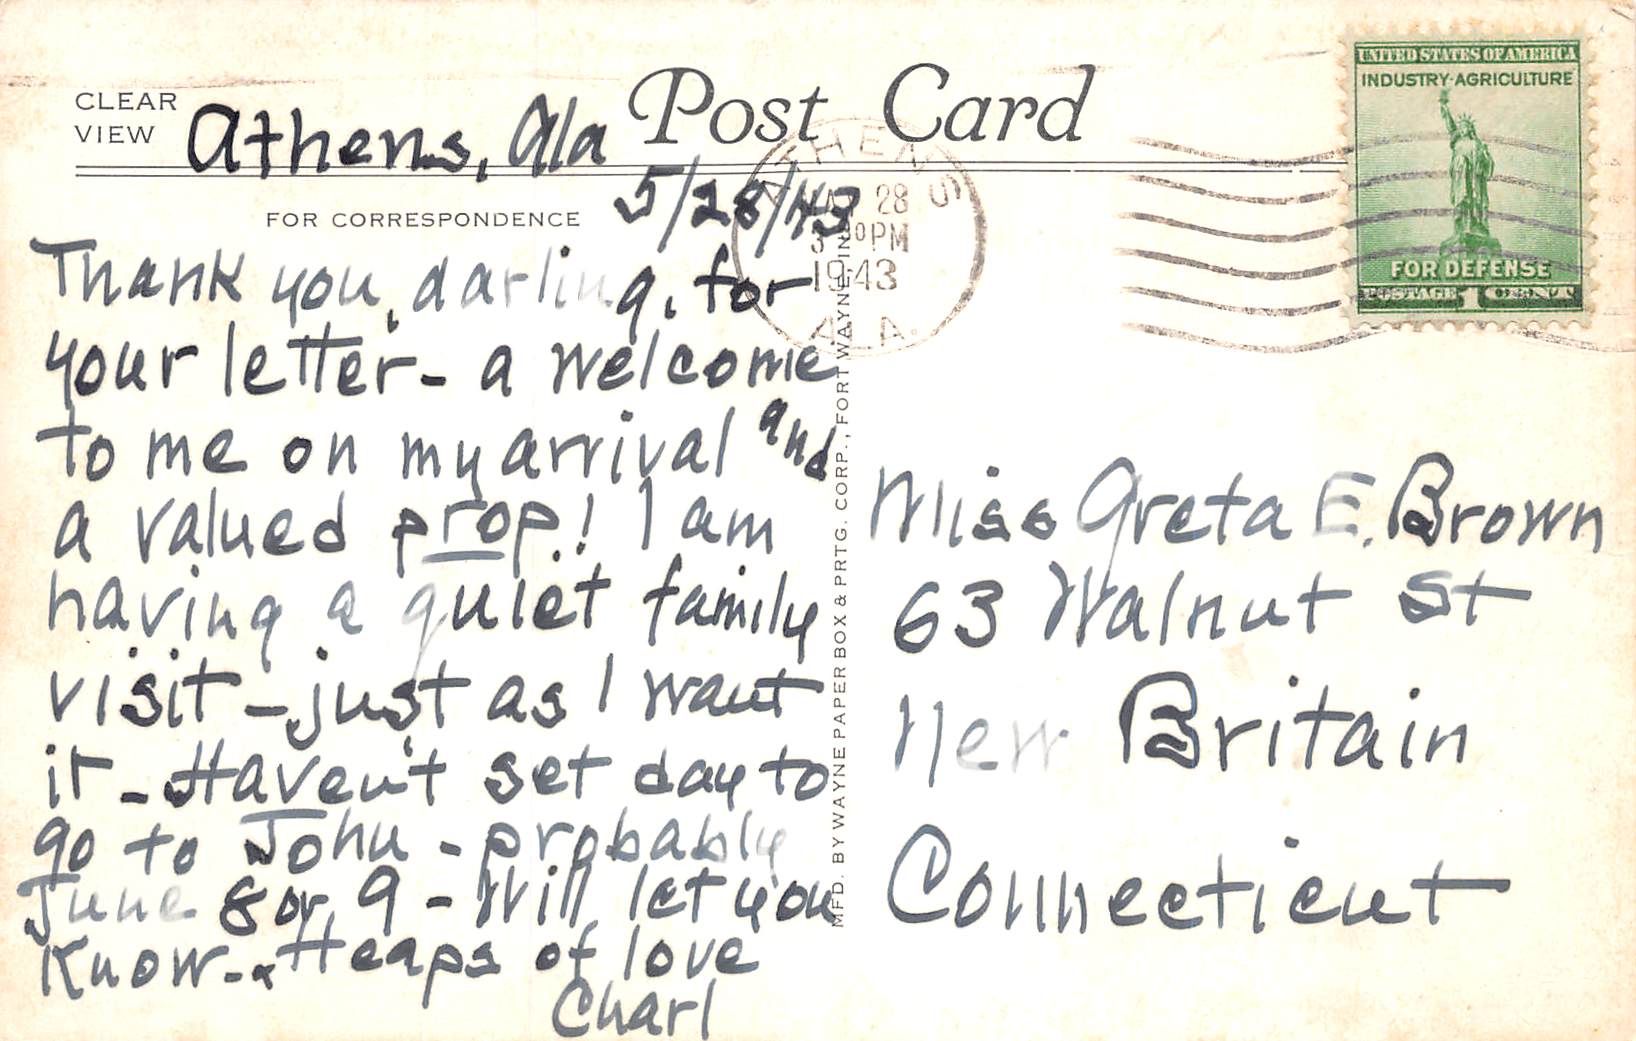 CLEAR
VIEW
Post Card
Athens, Ala
5/28/43
FOR CORRESPONDENCE
Thank you, darling, for
your letter - a welcome
to me on my arrival and
a valued prop! I am
having a quiet family
visit - just as I want
it - Haven't set day to
go to John - probably
June 8 or 9 - Will let you
know - Heaps of love
Charl
MFD. BY WAYNE PAPER BOX & PRTG. CORP., FORT WAYNE, IND.
ATHENS
28
30 PM
1943
ALA.
UNITED STATES OF AMERICA
INDUSTRY·AGRICULTURE
FOR DEFENSE
POSTAGE 1 CENT
Miss Greta E. Brown
63 Walnut St
New Britain
Connecticut